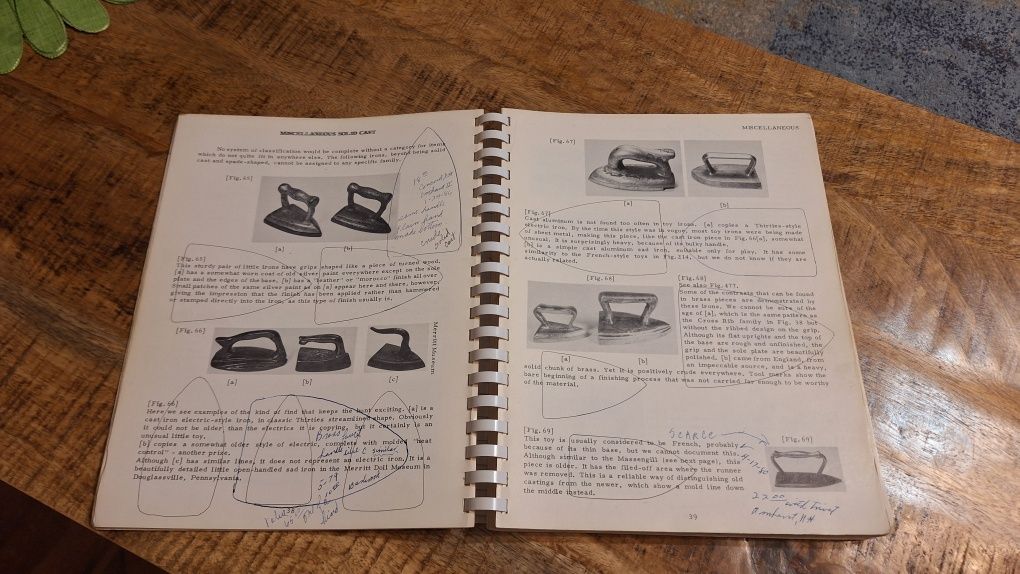 MISCELLANEOUS SOLID CAST
No system of classification would be complete without a category for items
which do not quite fit in anywhere else. The following irons, beyond being solid
cast and spade-shaped, cannot be assigned to any specific family.
[Fig. 65]
[a]
[b]
[Fig. 65]
This sturdy pair of little irons have grips shaped like a piece of turned wood.
[a] has a somewhat worn coat of old silver paint everywhere except on the sole
plate and the edges of the base. [b] has a "leather" or "morocco" finish all over.
Small patches of the same silver paint as on [a] appear here and there, however,
giving the impression that the finish has been applied rather than hammered
or stamped directly into the iron, as this type of finish usually is.
[Fig. 66]
Merritt Museum
[a]
[b]
[c]
[Fig. 66]
Here we see examples of the kind of find that keeps the hunt exciting. [a] is a
cast iron electric-style iron, in classic Thirties streamlined shape. Obviously
it could not be older than the electrics it is copying, but it certainly is an
unusual little toy.
[b] copies a somewhat older style of electric, complete with molded "heat
control" - another prize.
Although [c] has similar lines, it does not represent an electric iron. It is a
beautifully detailed little open-handled sad iron in the Merritt Doll Museum in
Douglassville, Pennsylvania.
5-79
MISCELLANEOUS
[Fig. 67]
[a]
[b]
[Fig. 67]
Cast aluminum is not found too often in toy irons. [a] copies a Thirties-style
electric iron. By the time this style was in vogue, most toy irons were being made
of sheet metal, making this piece, like the cast iron piece in Fig. 66[a], somewhat
unusual. It is surprisingly heavy, because of its bulky handle.
[b] is a simple cast aluminum sad iron, suitable only for play. It has some
similarity to the French-style toys in Fig. 214, but we do not know if they are
actually related.
[Fig. 68]
[a]
[b]
[Fig. 68]
See also Fig. 477.
Some of the contrasts that can be found
in brass pieces are demonstrated by
these irons. We cannot be sure of the
age of [a], which is the same pattern as
the Cross Rib family in Fig. 38 but
without the ribbed design on the grip.
Although its flat uprights and the top of
the base are rough and unfinished, the
grip and the sole plate are beautifully
polished. [b] came from England, from
an impeccable source, and is a heavy,
solid chunk of brass. Yet it is positively crude everywhere. Tool marks show the
bare beginning of a finishing process that was not carried far enough to be worthy
of the material.
SCARCE
[Fig. 69]
[Fig. 69]
This toy is usually considered to be French, probably
because of its thin base, but we cannot document this.
Although similar to the Massengill (see next page), this
piece is older. It has the filed-off area where the runner
was removed. This is a reliable way of distinguishing old
castings from the newer, which show a mold line down
the middle instead.
4-17-80
22.00 with trivet
Amherst, NH
39